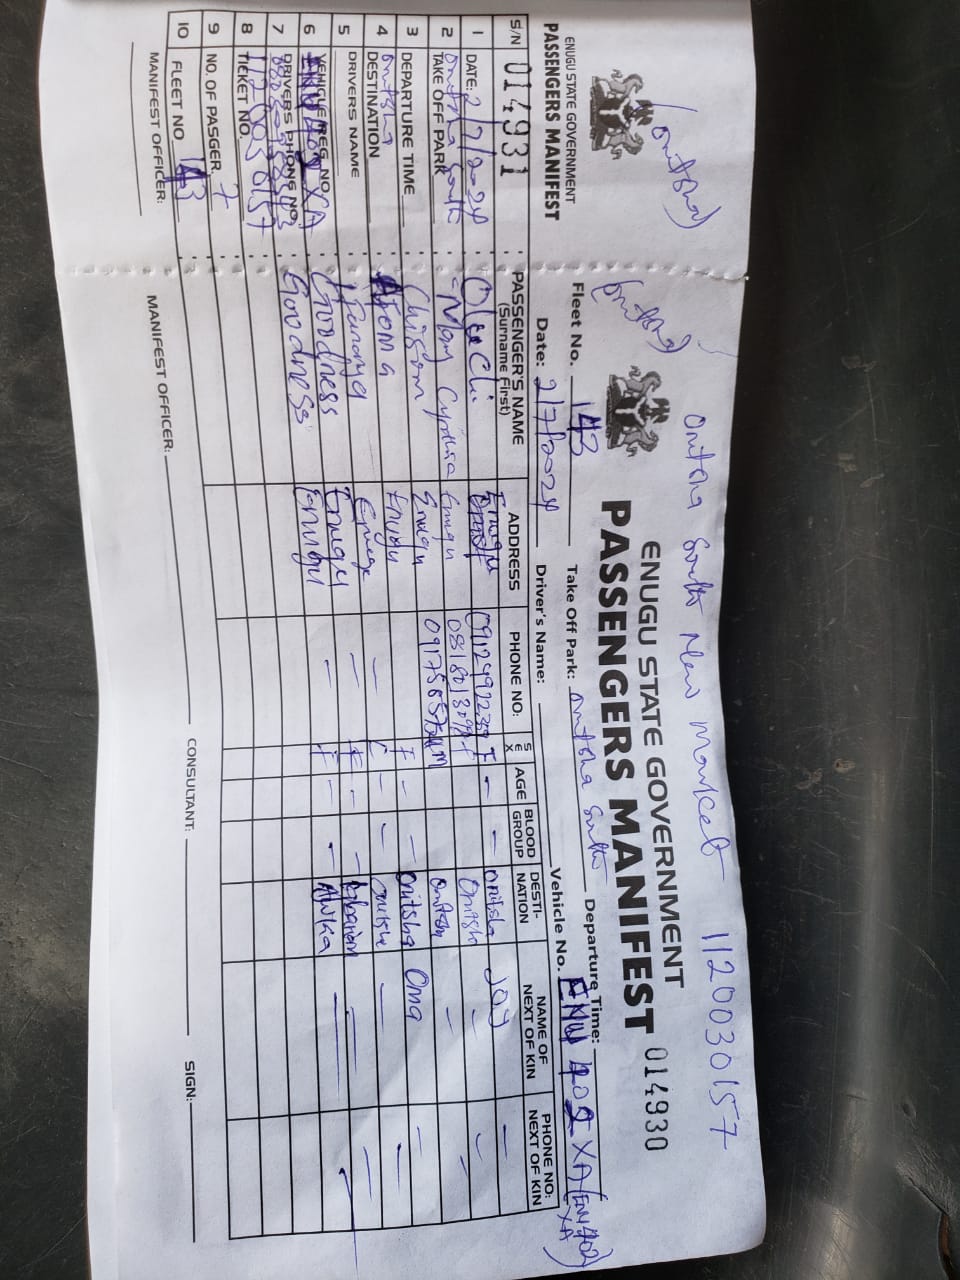 (onitsha)
ENUGU STATE GOVERNMENT
PASSENGERS MANIFEST
S/N 014931
1 DATE: 2/7/2024
2 TAKE OFF PARK
onitsha South
3 DEPARTURE TIME
4 DESTINATION
onitsha
5 DRIVERS NAME
6 VEHICLE REG. NO.
ENU 402 XA
7 DRIVERS PHONE NO.
8 TICKET NO.
1120030157
9 NO. OF PASGER. 7
10 FLEET NO 143
MANIFEST OFFICER:
Onitsha South New market 1120030157
(onitsha)
ENUGU STATE GOVERNMENT
PASSENGERS MANIFEST 014930
Fleet No. 143 Take Off Park: onitsha South Departure Time:
Date: 2/7/2024 Driver's Name: Vehicle No. ENU 402 XA (ENU 402 XA)
PASSENGER'S NAME (Surname First) ADDRESS PHONE NO: SEX AGE BLOOD GROUP DESTI-NATION NAME OF NEXT OF KIN PHONE NO: NEXT OF KIN
Oluchi Enugu F - - onitsha Joy -
Mary Cynthia Enugu F onitsha - -
Chisom Enugu M onitsha - -
Ajoma Enugu - F - - onitsha Oma -
Ifunanya Enugu - - - onitsha - -
Goodness Enugu - F - - - -
Goodness Enugu - F - - Awka - -
MANIFEST OFFICER: CONSULTANT: SIGN: